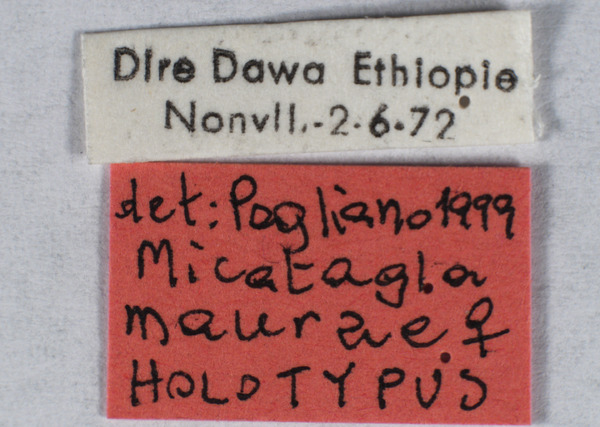 Dire Dawa Ethiopie
Nonvll.-2-6.72
det: Pagliano 1999
Micatagla
maurae ♀
HOLOTYPUS